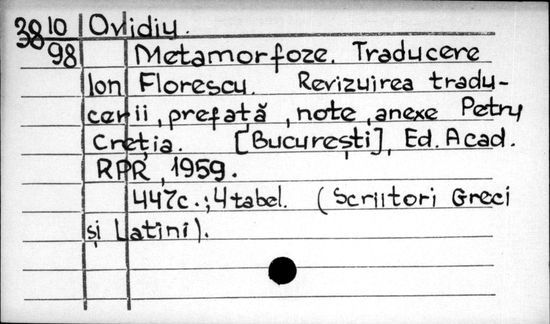 38 10 Ovidiu.
98 Metamorfoze. Traducere
Ion Florescu. Revizuirea tradu-
cerii, prefată, note, anexe Petru
Creția. [București], Ed. Acad.
RPR, 1959.
447c.; 4 tabel. (Scriitori Greci
și Latini).